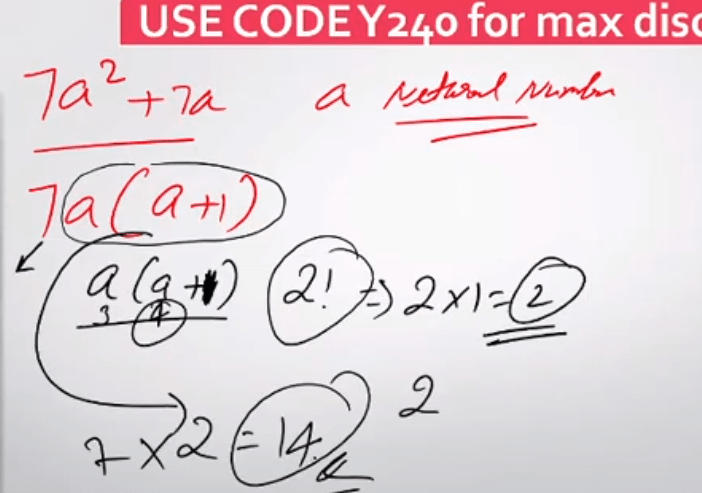 USE CODE Y240 for max disc
7a² + 7a a Natural Number
7a(a+1)
a(a+1) 2! => 2×1=2
3 4
2
7×2=14